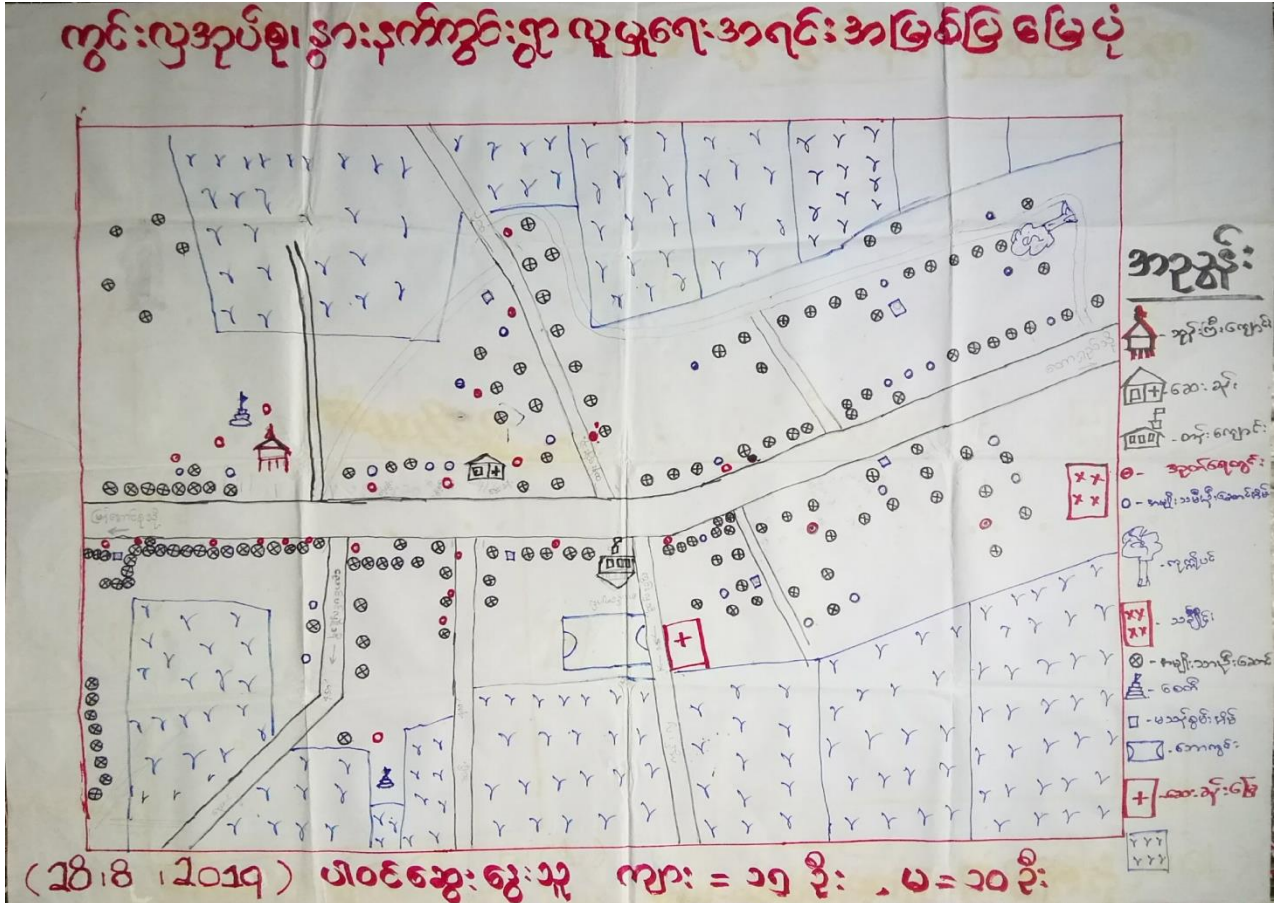 ကွင်းလှအုပ်စု၊ နွားနက်ကွင်းရွာ လူမှုရေးအရင်းအမြစ်ပြ မြေပုံ
အညွှန်း
- ဘုန်းကြီးကျောင်း
- ဆေးခန်း
- စာသင်ကျောင်း
- အုတ်ရေတွင်း
- အမျိုးသမီးဦးဆောင်အိမ်
- ကုက္ကိုပင်
- သင်္ချိုင်း
- အမျိုးသားဦးဆောင်
- စေတီ
- မသန်စွမ်းအိမ်
- ဘောကွင်း
- ဆေးခန်းမြေ
(28.8.2019) ပါဝင်ဆွေးနွေးသူ ကျား = ၁၅ ဦး ၊ မ = ၁၀ ဦး